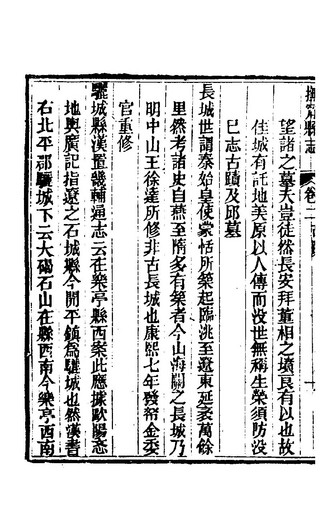 撫寧縣志 卷二
望諸之墓夫豈徒然長安拜董相之壙良有以也故
佳城有託地美原以人傳而没世無稱生榮須防没
已志古蹟及邱墓
長城世謂秦始皇使蒙恬所築起臨洮至遼東延袤萬餘
里然考諸史自燕至隋多有築者今山海關之長城乃
明中山王徐達所修非古長城也康熙七年發帑金委
官重修
驪城縣漢置畿輔通志云在樂亭縣西案此應據歐陽忞
地輿廣記指遼之石城縣今開平鎮為驪城也然漢書
右北平郡驪城下云大碣石山在縣西南今樂亭西南